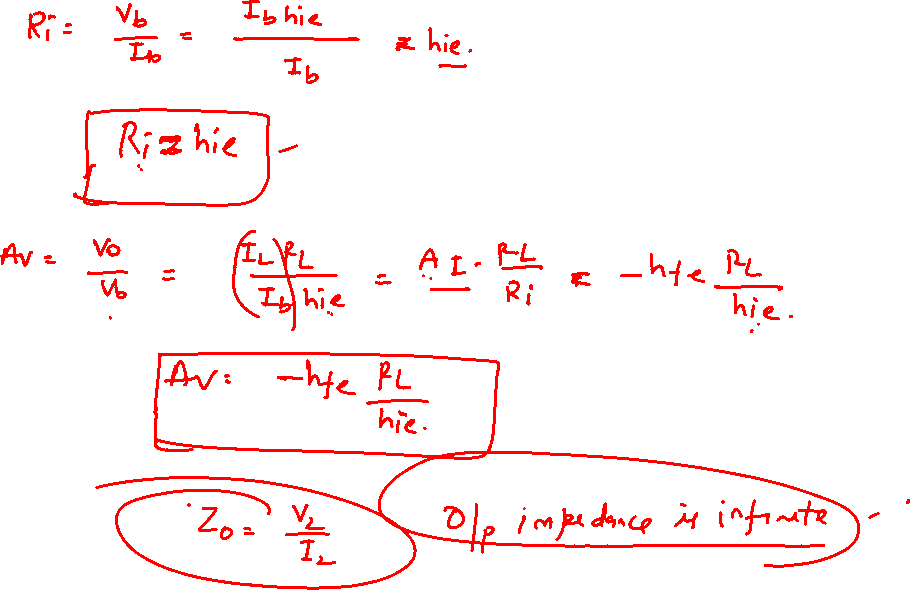 Ri = Vb / Ib = Ib hie / Ib ≈ hie.
Ri ≈ hie
Av = Vo / Vb = (IL) RL / (Ib) hie = AI · RL / Ri = -hfe RL / hie.
Av = -hfe RL / hie.
Zo = V2 / I2 O/p impedance is infinite